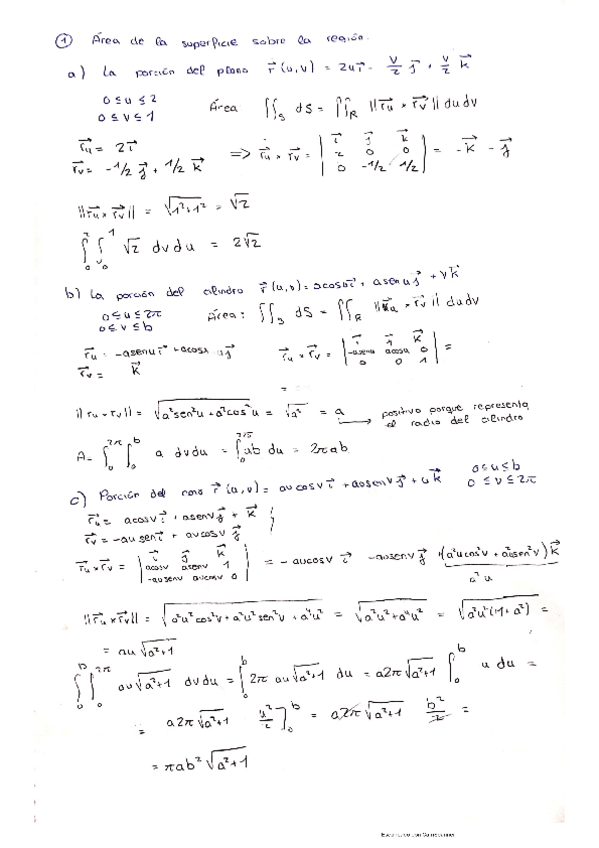 ① Área de la superficie sobre la región.
a) La porción del plano r⃗(u,v) = 2u i⃗ - v/2 j⃗ + v/2 k⃗
0 ≤ u ≤ 2
0 ≤ v ≤ 1
Área ∬_S dS = ∬_R ||r⃗u × r⃗v|| du dv
r⃗u = 2 i⃗
r⃗v = -1/2 j⃗ + 1/2 k⃗
=> r⃗u × r⃗v = | i⃗ j⃗ k⃗ |
| 2 0 0 |
| 0 -1/2 1/2 | = -k⃗ - j⃗
||r⃗u × r⃗v|| = √(1²+1²) = √2
∫₀² ∫₀¹ √2 dv du = 2√2
b) La porción del cilindro r⃗(u,v) = a cosu i⃗ + a senu j⃗ + v k⃗
0 ≤ u ≤ 2π
0 ≤ v ≤ b
Área: ∬_S dS = ∬_R ||r⃗u × r⃗v|| du dv
r⃗u = -a senu i⃗ + a cosu j⃗
r⃗v = k⃗
r⃗u × r⃗v = | i⃗ j⃗ k⃗ |
| -a senu a cosu 0 |
| 0 0 1 | =
=
|| ru × rv || = √(a²sen²u + a²cos²u) = √a² = a → positivo porque representa
el radio del cilindro
A = ∫₀^2π ∫₀^b a dv du = ∫₀^2π ab du = 2πab
c) Porción del cono r⃗(u,v) = au cosv i⃗ + au senv j⃗ + u k⃗
0 ≤ u ≤ b
0 ≤ v ≤ 2π
r⃗u = a cosv i⃗ + a senv j⃗ + k⃗
r⃗v = -au senv i⃗ + au cosv j⃗
r⃗u × r⃗v = | i⃗ j⃗ k⃗ |
| a cosv a senv 1 |
| -au senv au cosv 0 | = -au cosv i⃗ - au senv j⃗ + (a²u cos²v + a²u sen²v) k⃗
a²u
||r⃗u × r⃗v|| = √(a²u²cos²v + a²u²sen²v + a⁴u²) = √(a²u² + a⁴u²) = √(a²u²(1+a²)) =
= au √(a²+1)
∫₀^b ∫₀^2π au √(a²+1) dv du = ∫₀^b 2π au √(a²+1) du = a2π √(a²+1) ∫₀^b u du =
= a2π √(a²+1) u²/2 ]₀^b = a2π √(a²+1) b²/2 =
= πab² √(a²+1)